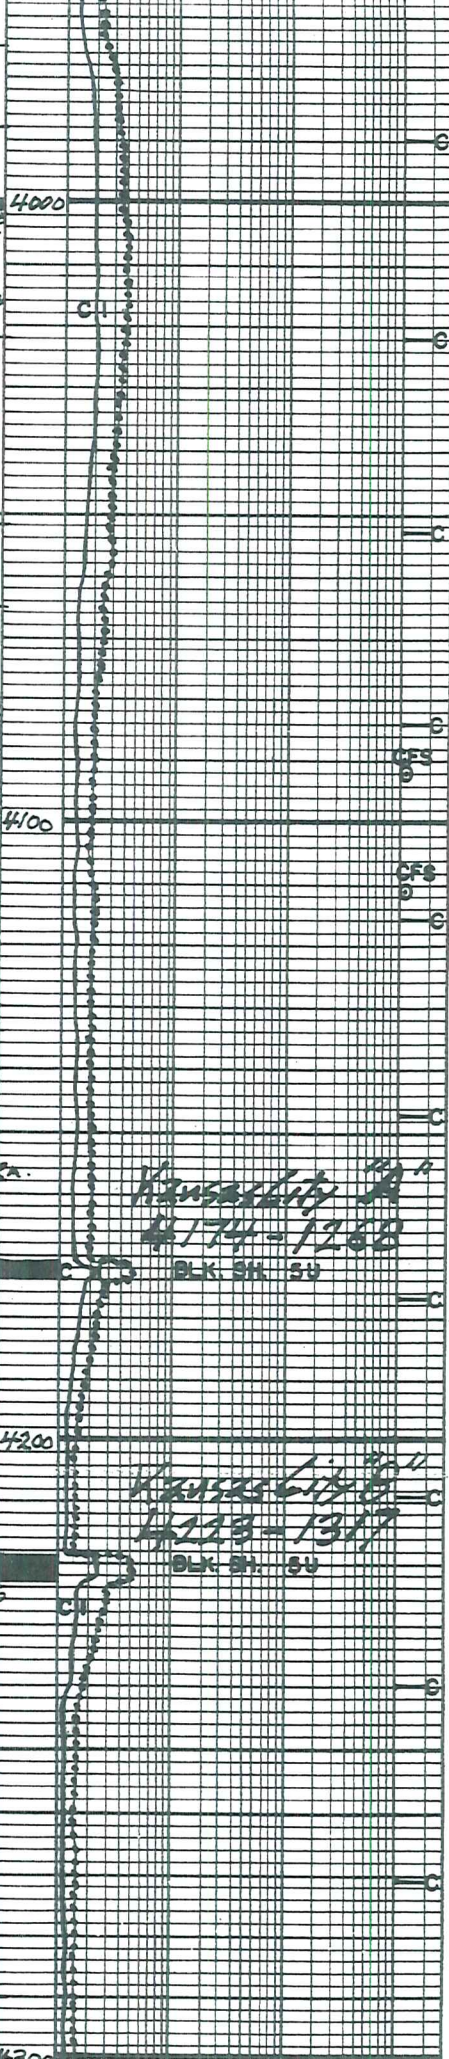 C
4000
C 1
C
C
C
CFS
4100
CFS
C
C
Kansas City "A"
4174-1268
C
BLK. SH. 5U
C
4200
Kansas City "B"
C
4223-1317
BLK. SH. 5U
C
C
C
4300